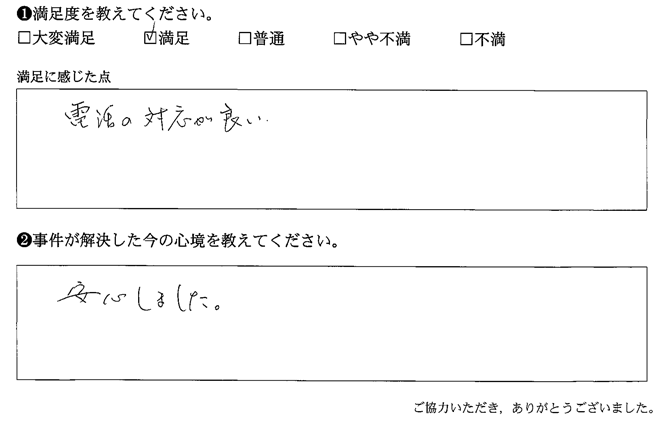 ❶満足度を教えてください。
□大変満足 ☑満足 □普通 □やや不満 □不満
満足に感じた点
電話の対応が良い.
❷事件が解決した今の心境を教えてください。
安心しました。
ご協力いただき，ありがとうございました。